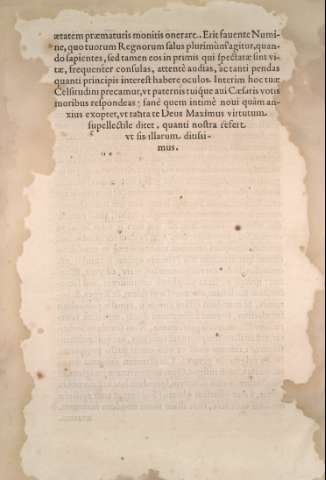 ætatem præmaturis monitis onerare. Erit fauente Numi-
ne, quo tuorum Regnorum salus plurimùm agitur, quan-
do sapientes, sed tamen eos in primis qui spectatæ sint vi-
tæ, frequenter consulas, attentè audias, ac tanti pendas
quanti principis interest habere oculos. Interim hoc tuæ
Celsitudini precamur, vt paternis tuique aui Cæsaris votis
moribus respondeas; sanè quem intimè noui quàm an-
xius exoptet, vt tanta te Deus Maximus virtutum
supellectile ditet, quanti nostra refert
vt sis illarum
mus.